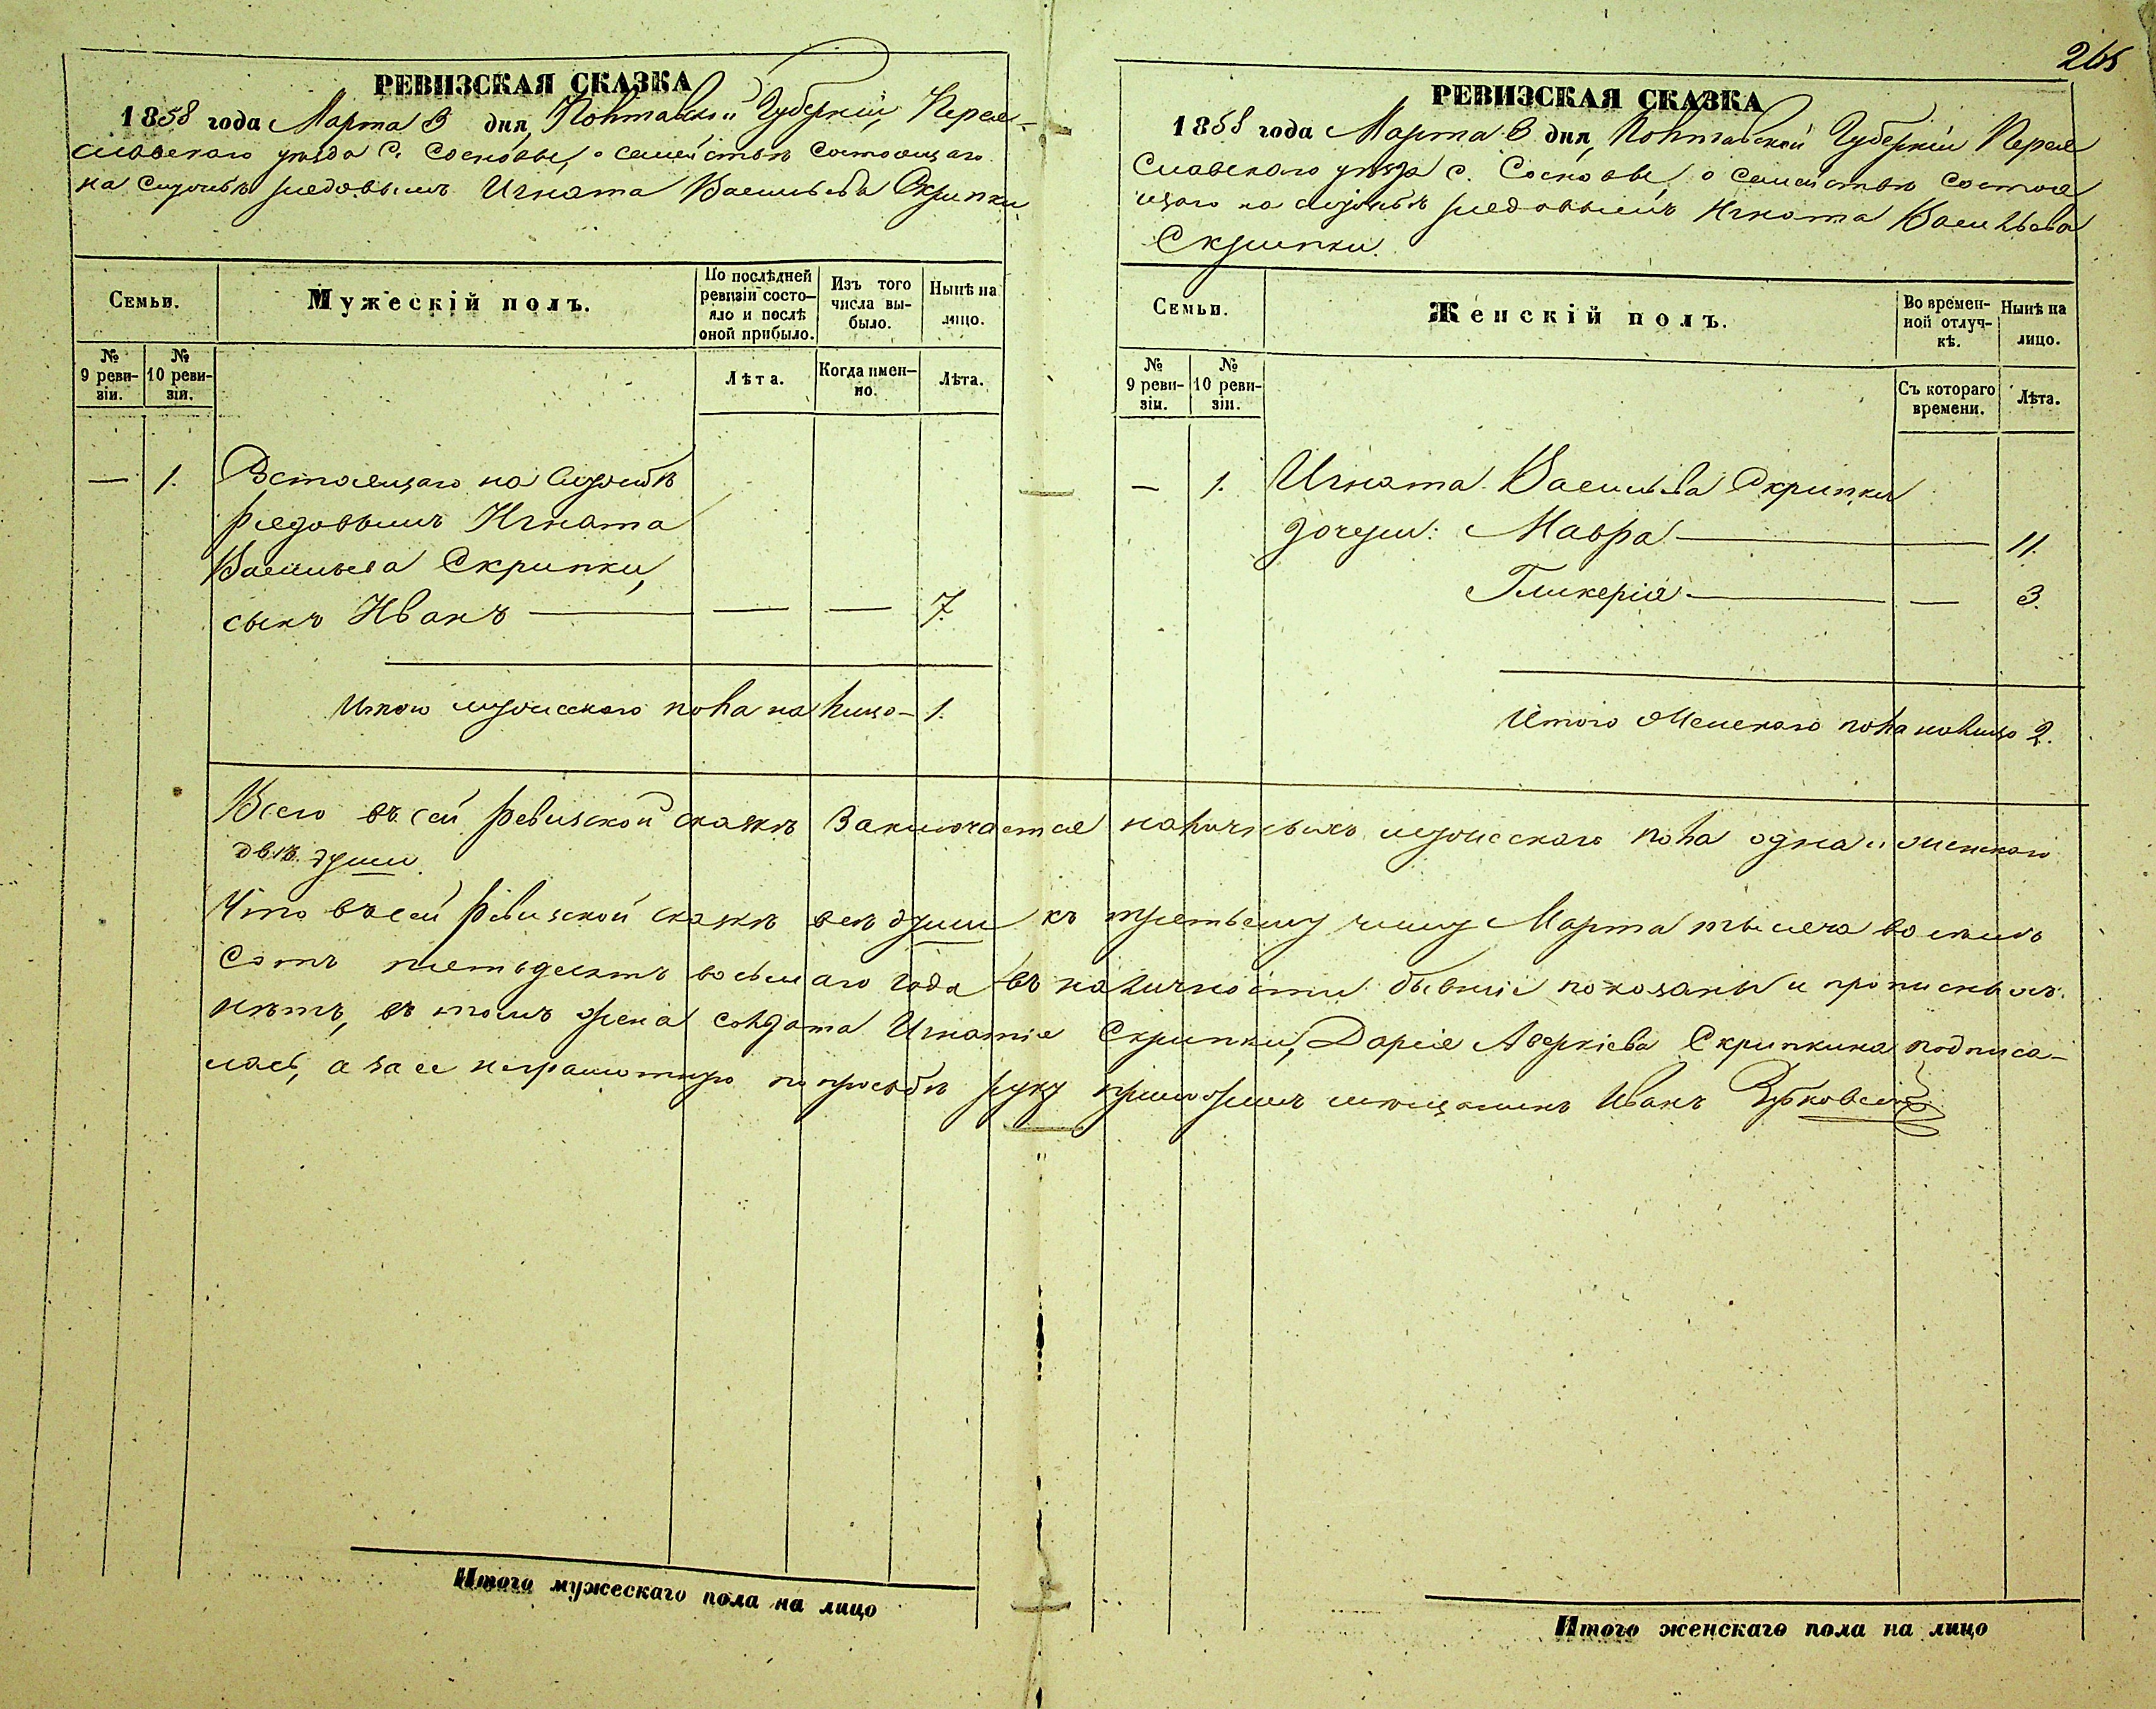 РЕВИЗСКАЯ СКАЗКА
1858 года Марта 3 дня, Полтавской Губерніи, Перея-
славскаго уезда С. Сосновы, о семействе состоящаго
на службѣ рядовымъ Игната Васильева Скрипки
Семьи.
Мужескій полъ.
По послѣдней ревизіи состо-
яло и послѣ оной прибыло.
Изъ того числа вы-
было.
Нынѣ на лицо.
№ 9 реви-
зіи.
№ 10 реви-
зіи.
Лѣта.
Когда имен-
но.
Лѣта.
— 1. Состоящаго на службѣ
рядовымъ Игната
Васильева Скрипки,
сынъ Иванъ — — — 7.
Итого мужескаго пола на лицо — 1.
265
РЕВИЗСКАЯ СКАЗКА
1858 года Марта 3 дня, Полтавской Губерніи Перея
славскаго уезда с. Сосновы, о семействѣ состоя
щаго на службѣ рядовымъ Игната Васильева
Скрипки.
Семьи.
Женскій полъ.
Во времен-
ной отлуч-
кѣ.
Нынѣ на лицо.
№ 9 реви-
зіи.
№ 10 реви-
зіи.
Съ котораго времени.
Лѣта.
— 1. Игната Васильева Скрипки
дочери: Мавра — 11.
Гликерія — — 3.
Итого Женскаго пола налицо 2.
Всего въ сей ревизской сказкѣ Заключается наличныхъ мужескаго пола одна и женскаго
двѣ души.
Что въ сей ревизской сказкѣ всѣ души къ третьему числу Марта тысяча восемь
сотъ пятьдесятъ восьмаго года въ наличности бывшіе показаны и прописныхъ
нѣтъ, въ томъ жена солдата Игнатія Скрипки, Дарія Аверкіева Скрипкина подписа-
лась, а за ее неграмотную по просьбѣ руку приложилъ мещанинъ Иванъ
Итого мужескаго пола на лицо
Итого женскаго пола на лицо